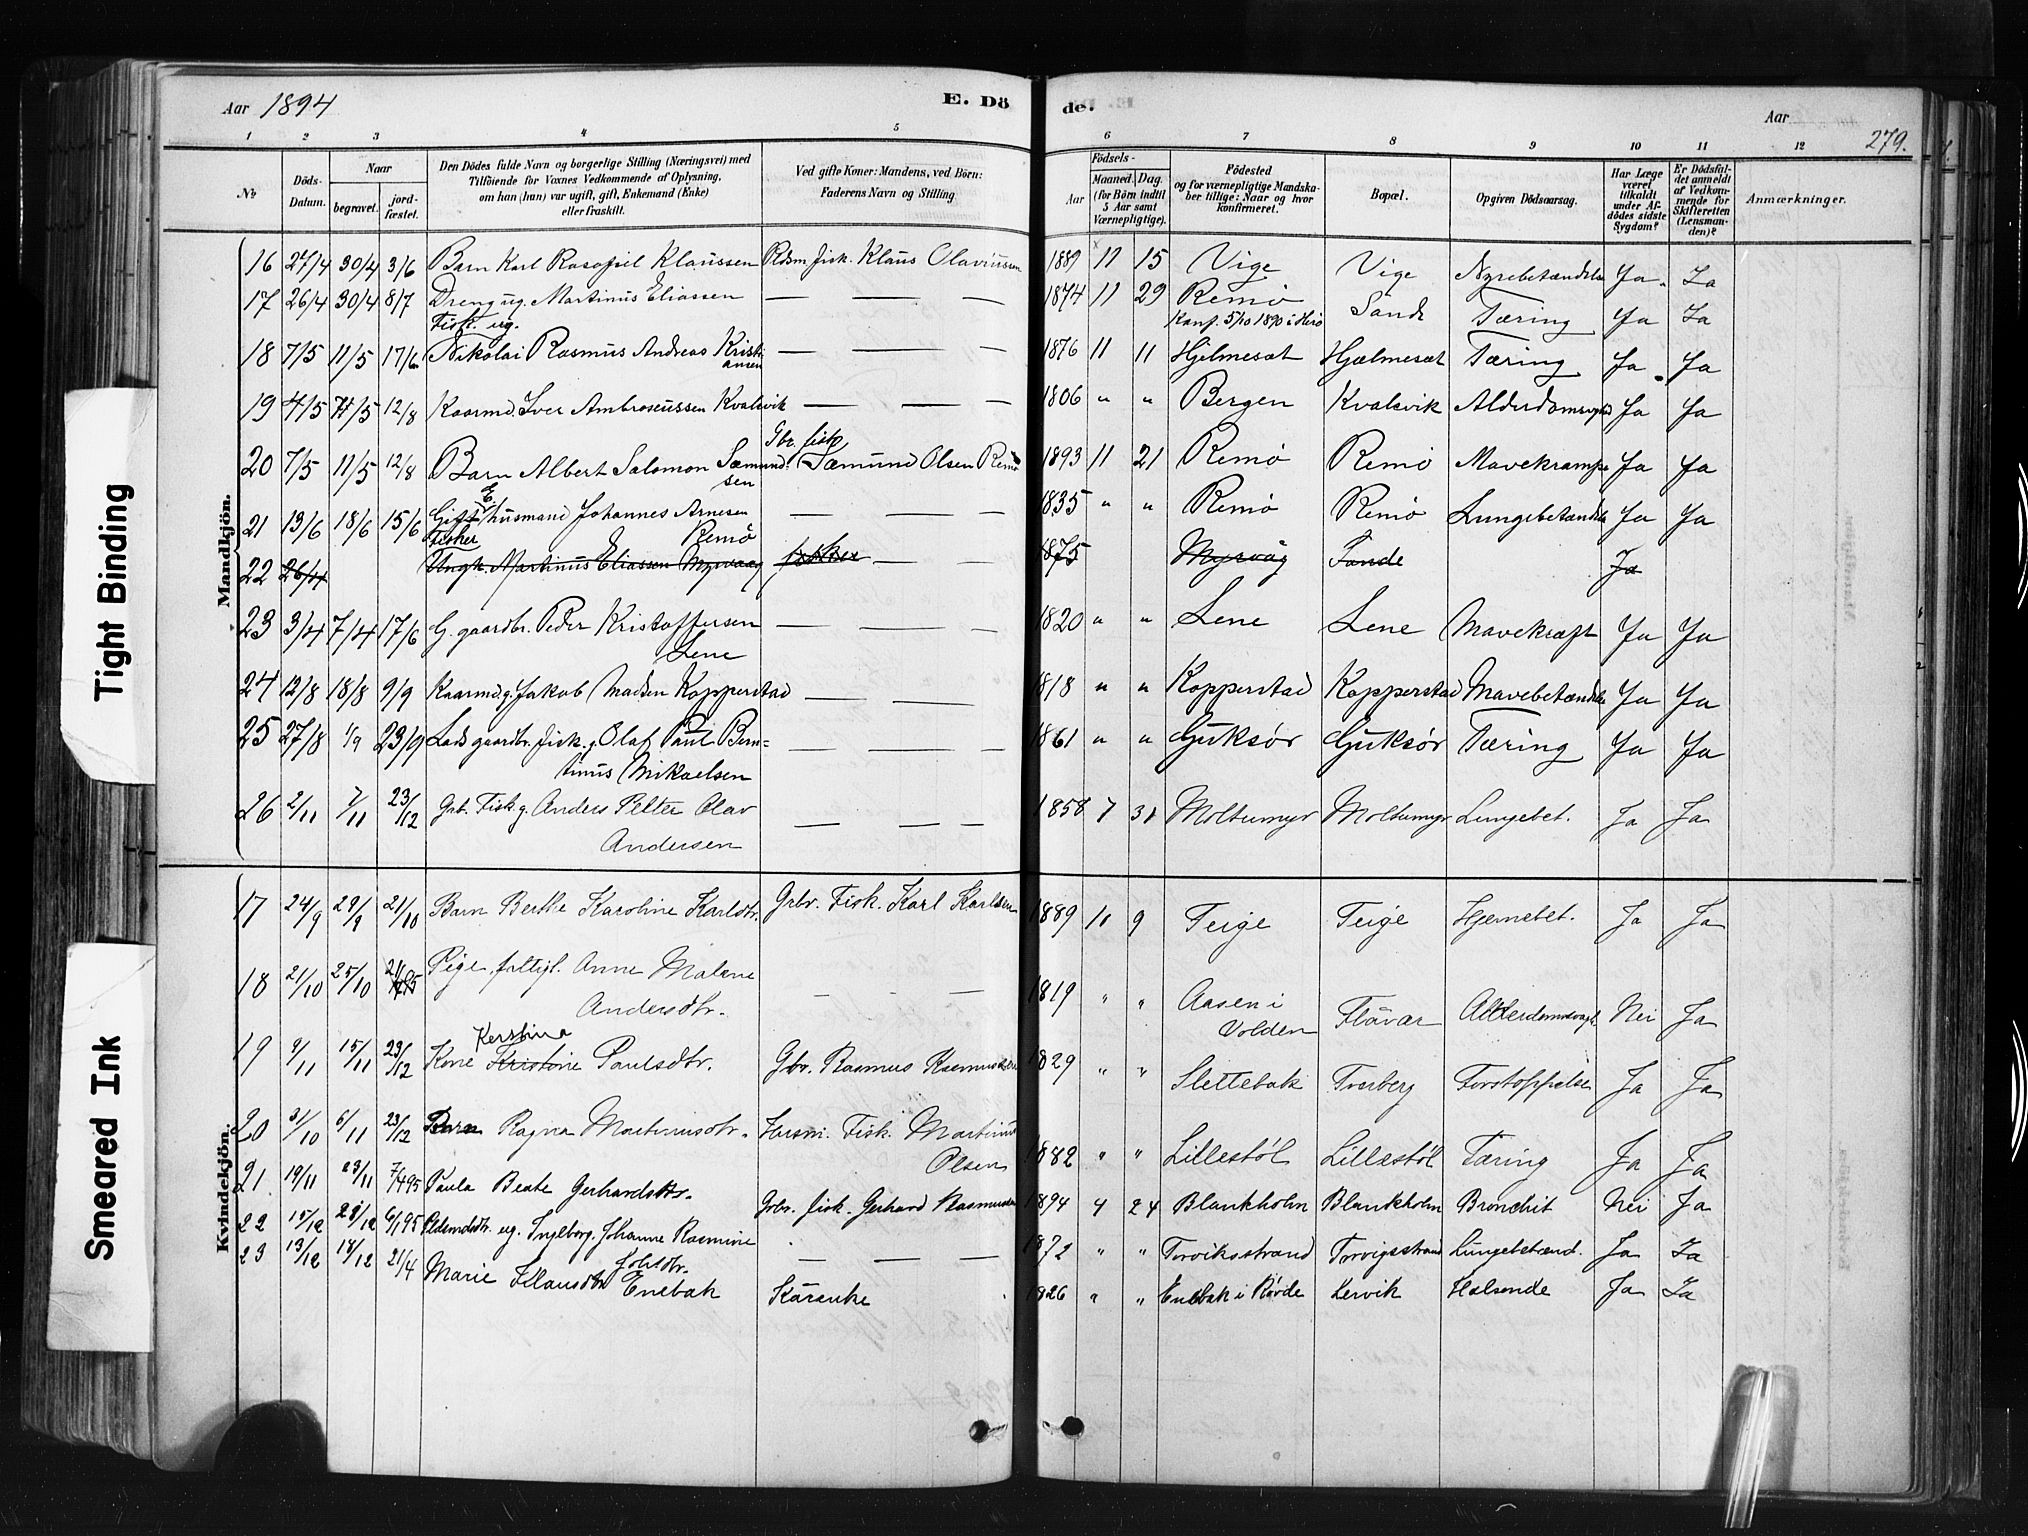 Aar 1894
E. Dö
de.
Aar
279.
1 2 3 4 5 6 7 8 9 10 11 12
No
Döds-Datum.
Naar
begravet.
jord-fæstet.
Den Dödes fulde Navn og borgerlige Stilling (Næringsvei) med
Tilföiende for Voxnes Vedkommende af Oplysning,
om han (hun) var ugift, gift, Enkemand (Enke)
eller fraskilt.
Ved gifte Koner: Mandens, ved Börn:
Faderens Navn og Stilling
Födsels-
Aar
Maaned.
Dag.
(for Börn indtil
5 Aar samt
Værnepligtige).
Födested
og for værnepligtige Mandska-
ber tillige: Naar og hvor
konfirmeret.
Bopæl.
Opgiven Dödsaarsag.
Har Læge
været
tilkaldt
under Af-
dödes sidste
Sygdom?
Er Dödsfal-
det anmeldt
af Vedkom-
mende for
Skifteretten
(Lensman-
den)?
Anmærkninger.
Mandkjön.
16 27/4 30/4 3/6 Barn Karl Klaussen Fisk. Klaus Olaviussen 1889 11 15 Vige Vige Nyrebetændelse Ja Ja
17 26/4 30/4 8/7 Dreng ug. Martinus Eliassen — — — 1874 11 29 Remø Sande Tæring Ja Ja
Fisk. ug.
Konf. 5/10 1890 i Herø
18 7/5 11/5 17/6 Nikolai Rasmus Andreas Kristi- — — — 1876 11 11 Hjelmesæt Hjælmesæt Tæring Ja Ja
ansen
19 4/5 11/5 12/8 Kaarmd. Iver Ambrosiussen Kvalsvik — — — 1806 " " Bergen Kvalsvik Ja Ja
Gbr. fisk
20 7/5 11/5 12/8 Barn Albert Salomon Sæmund- Sæmund Olsen Remø 1893 11 21 Remø Remø Mavekrampe Ja Ja
sen
E.
21 13/6 18/6 15/6 Gift husmand Johannes Arnesen — — — 1835 " " Remø Remø Lungebetændelse Ja Ja
Fisker Remø
22 26/4 Ungk. Martinus Eliassen Myrvaag fisker — — 1875 Myrvåg Sande Ja
23 3/4 7/4 17/6 G. gaardbr. Peder Kristoffersen — — — 1820 " " Lene Lene Mavekræft Ja Ja
Lene
24 12/8 18/8 9/9 Kaarmd. g. Jakob Madsen Kopperstad — — — 1818 " " Kopperstad Kopperstad Mavebetændelse Ja Ja
25 27/8 1/9 23/9 gaardbr. fisk. g. Olaf Paul Bern- — — — 1861 " " Gjuksør Gjuksør Tæring Ja Ja
tinus Mikaelsen
26 2/11 7/11 23/12 Grb. Fisk. g. Anders Petter Olav — — — 1858 7 31 Moltumyr Moltumyr Lungebet. Ja Ja
Andersen
Kvindekjön.
17 24/9 29/9 21/10 Barn Berthe Karoline Karlsdtr. Grbr. Fisk. Karl Karlsen 1889 11 9 Teige Teige Hjernebet. Ja Ja
18 21/10 25/10 Pige, fattigl. Anne Malene — — — 1819 " " Aasen i Flåvær Nei Ja
Andersdtr. Volden
Kerstina
19 9/11 15/11 23/12 Kone Kristine Paulsdtr. Gbr. Rasmus Rasmussen 1829 " " Slettebak Tverberg Forstoppelse Ja Ja
20 31/10 6/11 23/12 Barn Ragna Martinusdtr. Husm. Fisk. Martinus 1882 " " Lillestøl Lillestøl Tæring Ja Ja
Olsen
21 19/11 23/11 7/4 95 Paula Beate Gerhardsdtr. Grbr. fisk. Gerhard Rasmussen 1894 4 24 Blankholm Blankholm Bronchit Nei Ja
22 15/12 28/12 6/1 95 ug. Ingeborg Johanne Rasmine — — — 1872 " " Torviksstrand Torvigsstrand Lungebetænd. Ja Ja
23 13/12 18/12 21/4 Marie Klausdtr. Enebak Kårenke 1826 " " Enebak i Røvde Lervik Halsonde Ja Ja
Tight Binding
Smeared Ink